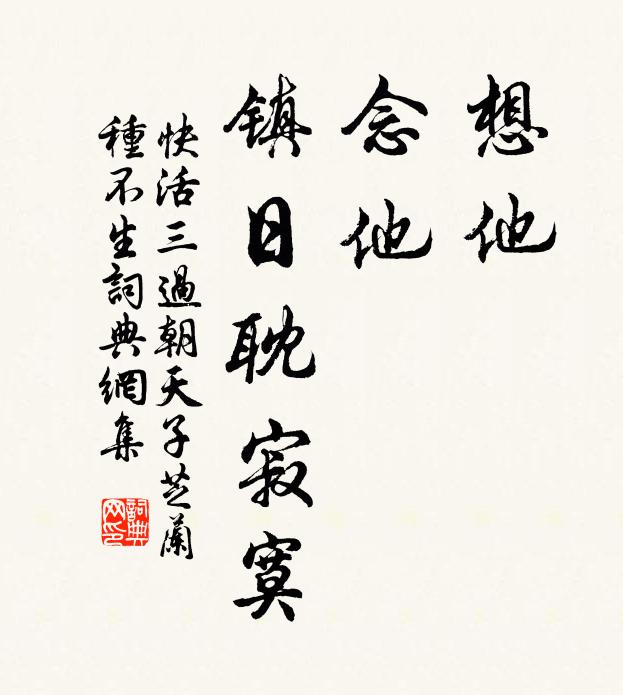 想他
念他
鎮日耽寂寞
快活三過朝天子芝蘭
種不生詞典網集
詞典
网印